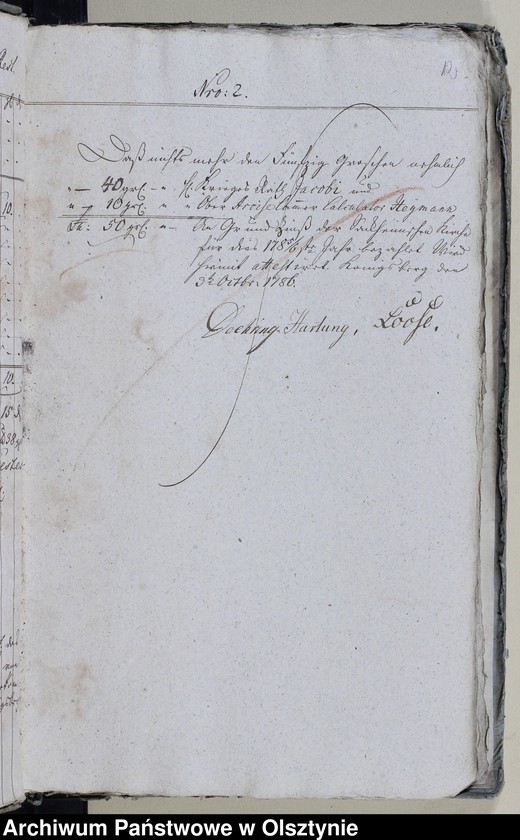 Nro: 2.
Daß nichts mehr den Fünfzig Groschen nehmlich
„— 40 gr. „ H. Krieges Rath Jacobi und
„ — 10 gr. „ „ Ober Accise Cammer Calculator Hegmann
50 gr. „— An Grund Zinß der Sackheimschen Kirche
für dies 1785/6ste Jahr bezahlet Wird
hiemit attestiret. Koenigsberg den
3t Octbr. 1786.
Doehring. Hartung. Loose.
10.
10.
Archiwum Państwowe w Olsztynie